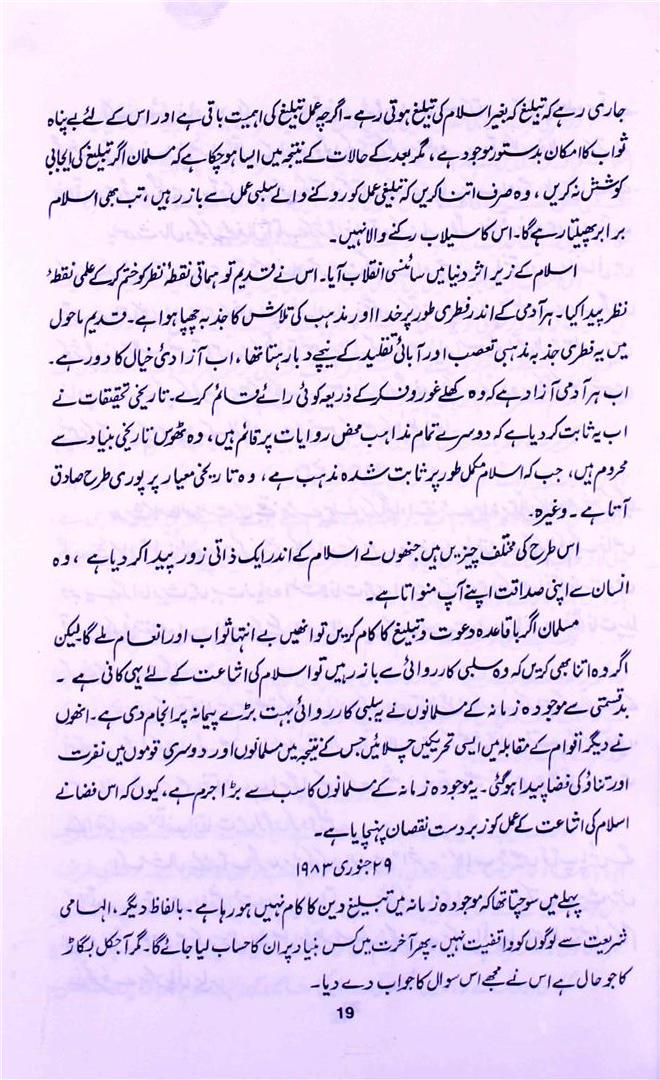 جاری رہے کہ تبلیغ کے بغیر اسلام کی تبلیغ ہوتی رہے۔ اگرچہ عمل تبلیغ کی اہمیت باقی ہے اور اس کے لئے بے پناہ
ثواب کا امکان بدستور موجود ہے، مگر بعد کے حالات کے نتیجہ میں ایسا ہوچکا ہے کہ مسلمان اگر تبلیغ کی ایجابی
کوشش نہ کریں، وہ صرف اتنا کریں کہ تبلیغی عمل کو روکنے والے سلبی عمل سے باز رہیں، تب بھی اسلام
برابر پھیلتا رہے گا۔ اس کا سیلاب رکنے والا نہیں۔
اسلام کے زیر اثر دنیا میں سائنسی انقلاب آیا۔ اس نے قدیم توہماتی نقطۂ نظر کو ختم کرکے علمی نقطۂ
نظر پیدا کیا۔ ہر آدمی کے اندر فطری طور پر خدا اور مذہب کی تلاش کا جذبہ چھپا ہوا ہے۔ قدیم ماحول
میں یہ فطری جذبہ مذہبی تعصب اور آبائی تقلید کے نیچے دبا رہتا تھا، اب آزادیٔ خیال کا دور ہے۔
اب ہر آدمی آزاد ہے کہ وہ کھلے غور و فکر کے ذریعہ کوئی رائے قائم کرے۔ تاریخی تحقیقات نے
اب یہ ثابت کر دیا ہے کہ دوسرے تمام مذاہب محض روایات پر قائم ہیں، وہ ٹھوس تاریخی بنیاد سے
محروم ہیں، جب کہ اسلام مکمل طور پر ثابت شدہ مذہب ہے، وہ تاریخی معیار پر پوری طرح صادق
آتا ہے۔ وغیرہ۔
اس طرح کی مختلف چیزیں ہیں جنھوں نے اسلام کے اندر ایک ذاتی زور پیدا کر دیا ہے، وہ
انسان سے اپنی صداقت اپنے آپ منواتا ہے۔
مسلمان اگر باقاعدہ دعوت و تبلیغ کا کام کریں تو انھیں بے انتہا ثواب اور انعام ملے گا لیکن
اگر وہ اتنا بھی کریں کہ وہ سلبی کارروائی سے باز رہیں تو اسلام کی اشاعت کے لئے یہی کافی ہے۔
بدقسمتی سے موجودہ زمانہ کے مسلمانوں نے یہ سلبی کارروائی بہت بڑے پیمانہ پر انجام دی ہے۔ انھوں
نے دیگر اقوام کے مقابلہ میں ایسی تحریکیں چلائیں جس کے نتیجہ میں مسلمانوں اور دوسری قوموں میں نفرت
اور تناؤ کی فضا پیدا ہوگئی۔ یہ موجودہ زمانہ کے مسلمانوں کا سب سے بڑا جرم ہے، کیوں کہ اس فضا نے
اسلام کی اشاعت کے عمل کو زبردست نقصان پہنچایا ہے۔
۲۹ جنوری ۱۹۸۳
پہلے میں سوچتا تھا کہ موجودہ زمانہ میں تبلیغ دین کا کام نہیں ہو رہا ہے۔ بالفاظ دیگر، الہامی
شریعت سے لوگوں کو واقفیت نہیں۔ پھر آخرت میں کس بنیاد پر ان کا حساب لیا جائے گا۔ مگر آجکل بگاڑ
کا جو حال ہے اس نے مجھے اس سوال کا جواب دے دیا۔
19